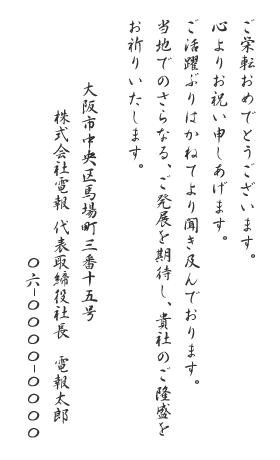 ご栄転おめでとうございます。
心よりお祝い申しあげます。
ご活躍ぶりはかねてより聞き及んでおります。
当地でのさらなる、ご発展を期待し、貴社のご隆盛を
お祈りいたします。
大阪市中央区馬場町三番十五号
株式会社電報 代表取締役社長 電報太郎
〇六-〇〇〇〇-〇〇〇〇